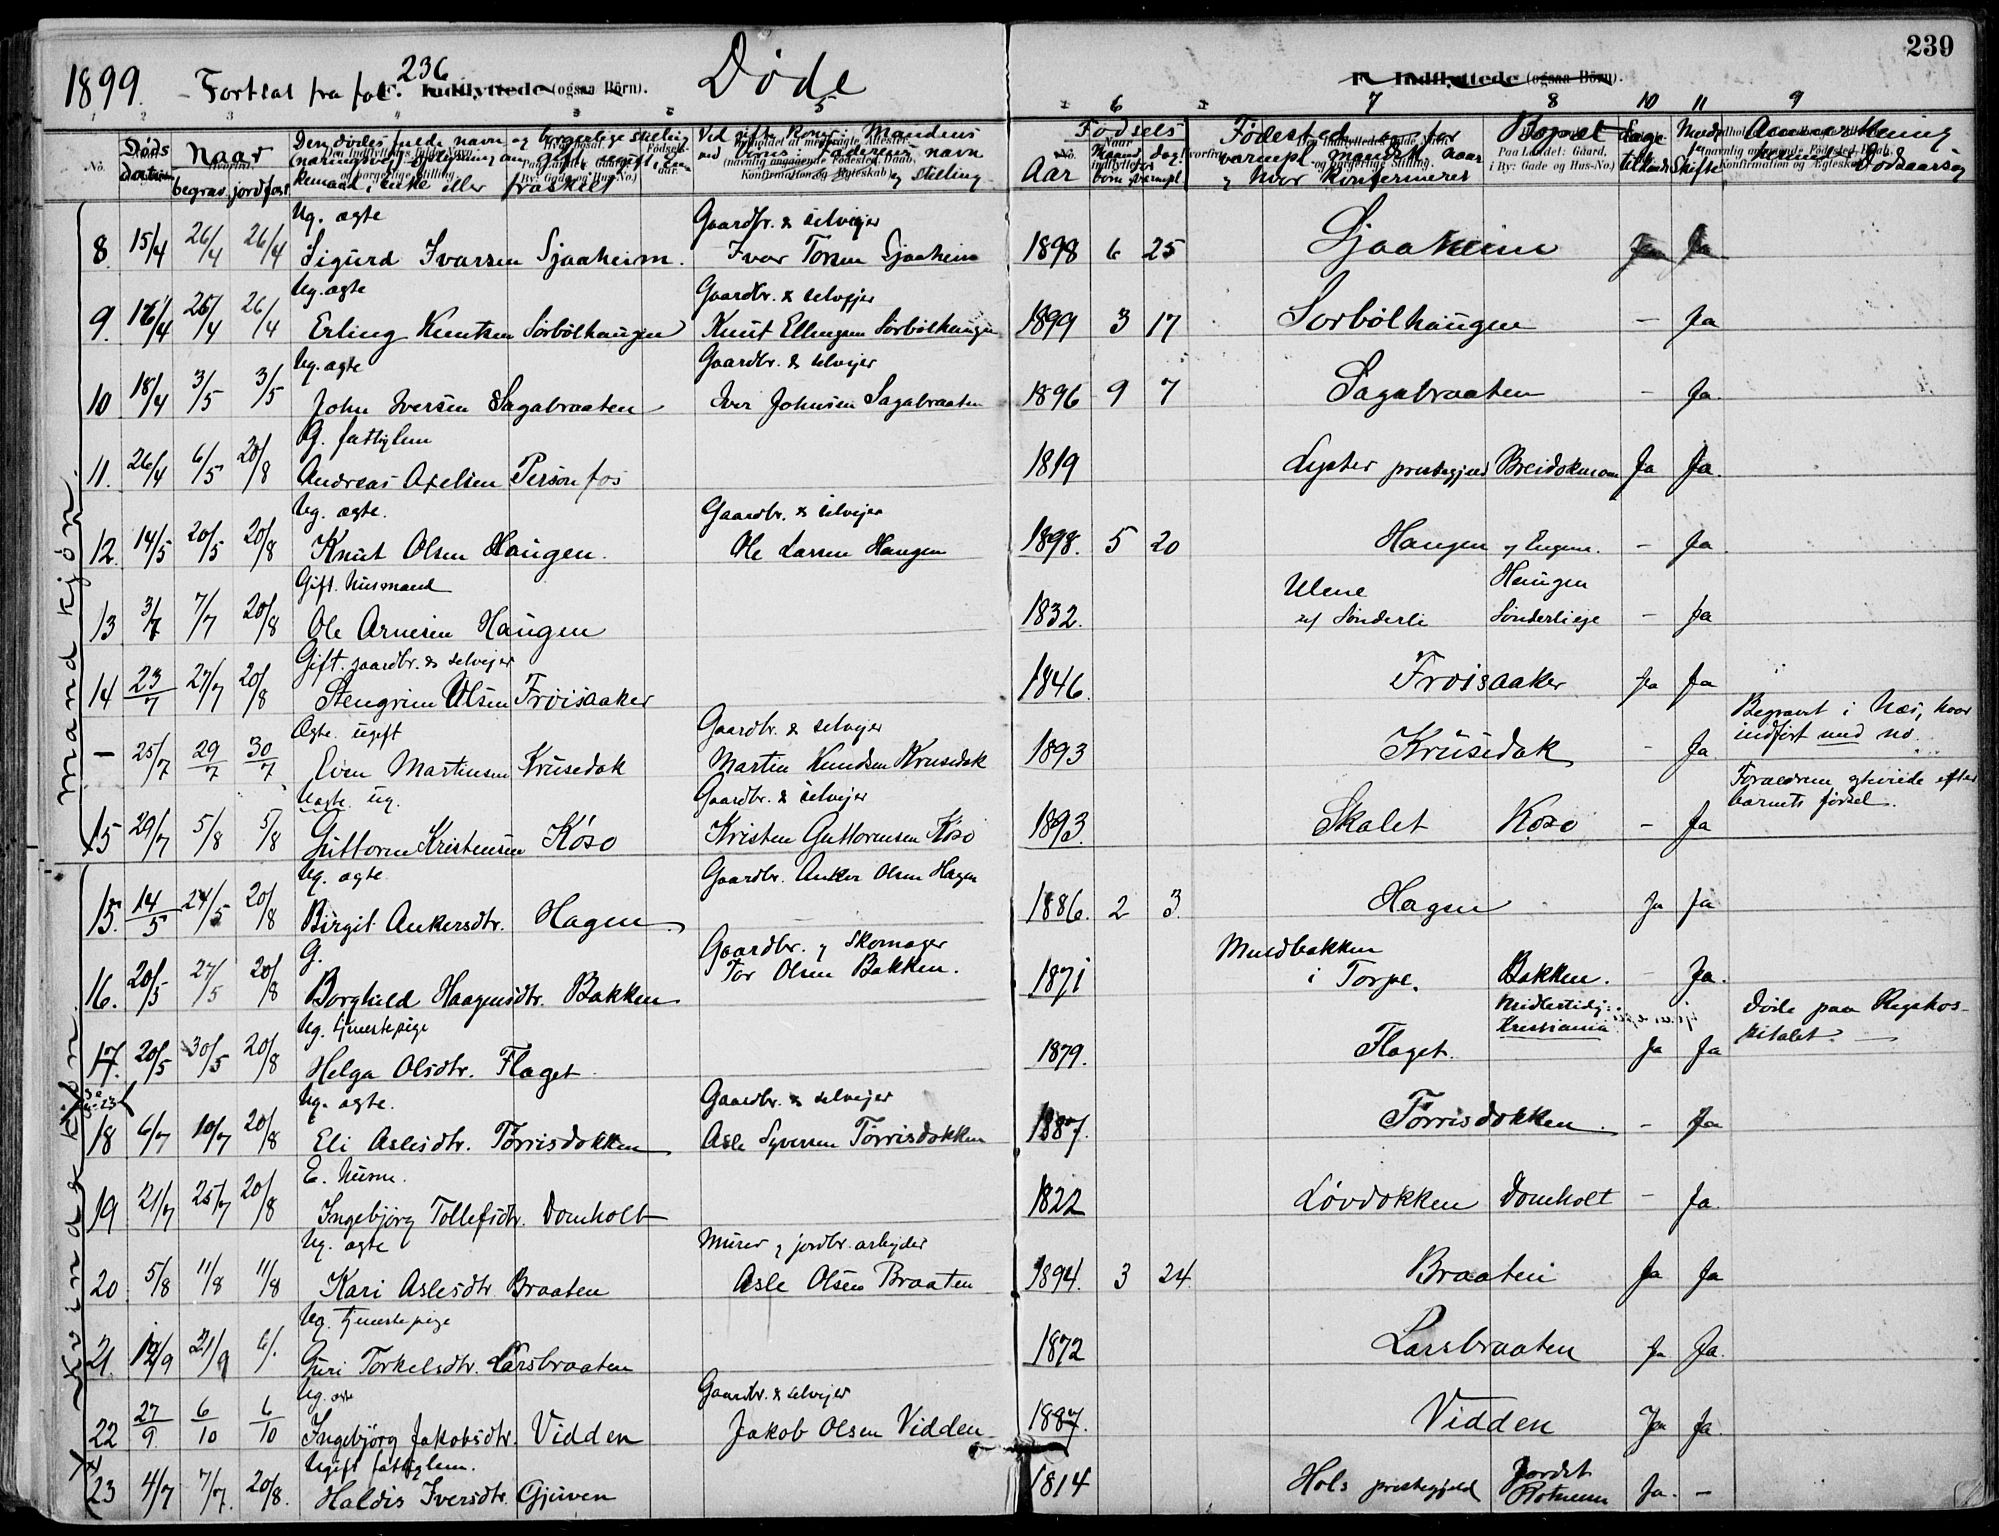 239
1899. Fortsat fra fol. 236 Døde
F. Indflyttede (ogsaa Börn).
F. Indflyttede (ogsaa Börn).
1 2 3 4 5 6 7 8 10 11 9
No. Døds Naar Den dødes fulde navn og borgerlige stilling Ved gifte koner: Mandens Fødsels Fødested Bopæl Læge Meldt Anmærkning
begrav. jordfæst. enke eller fraskilt navn og stilling Aar og hvor konfirmeret tilkaldt Skifte Dødsaarsag
mandkjøn.
Ug. ægte Gaardbr. & selvejer
8. 15/4 26/4 26/4 Sigurd Ivarsen Sjaaheim. Ivar Torsen Sjaaheim 1898 6 25 Sjaaheim Ja Ja
Ug. ægte Gaardbr. & selvejer
9. 16/4 26/4 26/4 Erling Knutsen Sørbölhaugen Knut Ellingsen Sørbölhaugen 1899 3 17 Sørbølhaugen - Ja
Ug. ægte Gaardbr. & selvejer
10 18/4 3/5 3/5 John Iversen Sagabraaten Iver Johnsen Sagabraaten 1896 9 7 Sagabraaten - Ja.
G. fattiglem
11. 26/4 6/5 20/8 Andreas Axelsen Personfos 1819 Lyster prestegjeld Ja Ja.
Ug. ægte. Gaardbr. & selvejer
12. 14/5 20/5 20/8 Knut Olsen Haugen. Ole Larsen Haugen 1898. 5 20 Haugen - Ja
Gift. Husmand Ulene Haugen
13 3/7 7/7 20/8 Ole Arnesen Haugen 1832. u/ Sønderli Sønderlieje - Ja
Gift. gaardbr. & selvejer
14 23/7 27/7 20/8 Stengrim Olsen Frøisaaker 1846. Frøisaaker Ja Ja
Ægte. ugift Gaardbr. & selvejer Begravet i Næs, hvor
- 25/7 29/7 30/7 Even Martinsen Krusedok Martin Knudsen Krusedok 1893 Krusedok - Ja. indført med no.
Uægte. ug. Gaardbr. & selvejer Forældrene gtviede efter
15 29/7 5/8 5/8 Guttorm Kristensen Köso Kristen Guttormsen Köso 1893. Skalet Köso - Ja barnets fødsel.
Kvindekjön.
Ug. ægte. Gaardbr. Anker Olsen Hagen
15. 14/5 24/5 20/8 Birgit Ankersdtr. Hagen 1886. 2 3. Hagen Ja Ja
G. Gaardbr. og Skomager Muldbakken
16. 20/5 27/5 20/8 Borghild Haagensdtr. Bakken Tor Olsen Bakken. 1871 i Torpe. Bakken. - Ja.
Ug. tjenestepige Midlertidig: Kristiania Døde paa Rigshos-
17. 20/5 30/5 20/8 Helga Olsdtr. Flaget 1879. Flaget. Ja Ja pitalet.
Se n. 23
Ug. ægte. Gaardbr. & selvejer
18 6/7 10/7 20/8 Eli Aslesdtr. Tørrisdokken Asle Syversen Tørrisdokken 1887. Tørrisdokken. - Ja
E. Husm.
19 21/7 25/7 20/8 Ingebjörg Tollefsdtr. Domholt 1822 Løvdokken Domholt - Ja.
Ug. ægte Murer og jordbr. arbejder
20 5/8 11/8 11/8 Kari Aslesdtr Braaten Asle Olsen Braaten 1894. 3 24. Braaten Ja Ja
Ug. tjenestepige
21. 12/9 21/9 6/. Guri Torkelsdtr. Larsbraaten 1872 Larsbraaten Ja Ja.
Ug. ægte Gaardbr. & selvejer
22 27/9 6/10 6/10 Ingebjörg Jakobsdtr. Vidden Jakob Olsen Vidden 1887. Vidden Ja Ja.
Ugift fattiglem. Jordet
23 4/7 7/7. 20/8. Haldis Iversdtr. Gjuven 1814 Hols prestegjeld Ja. -